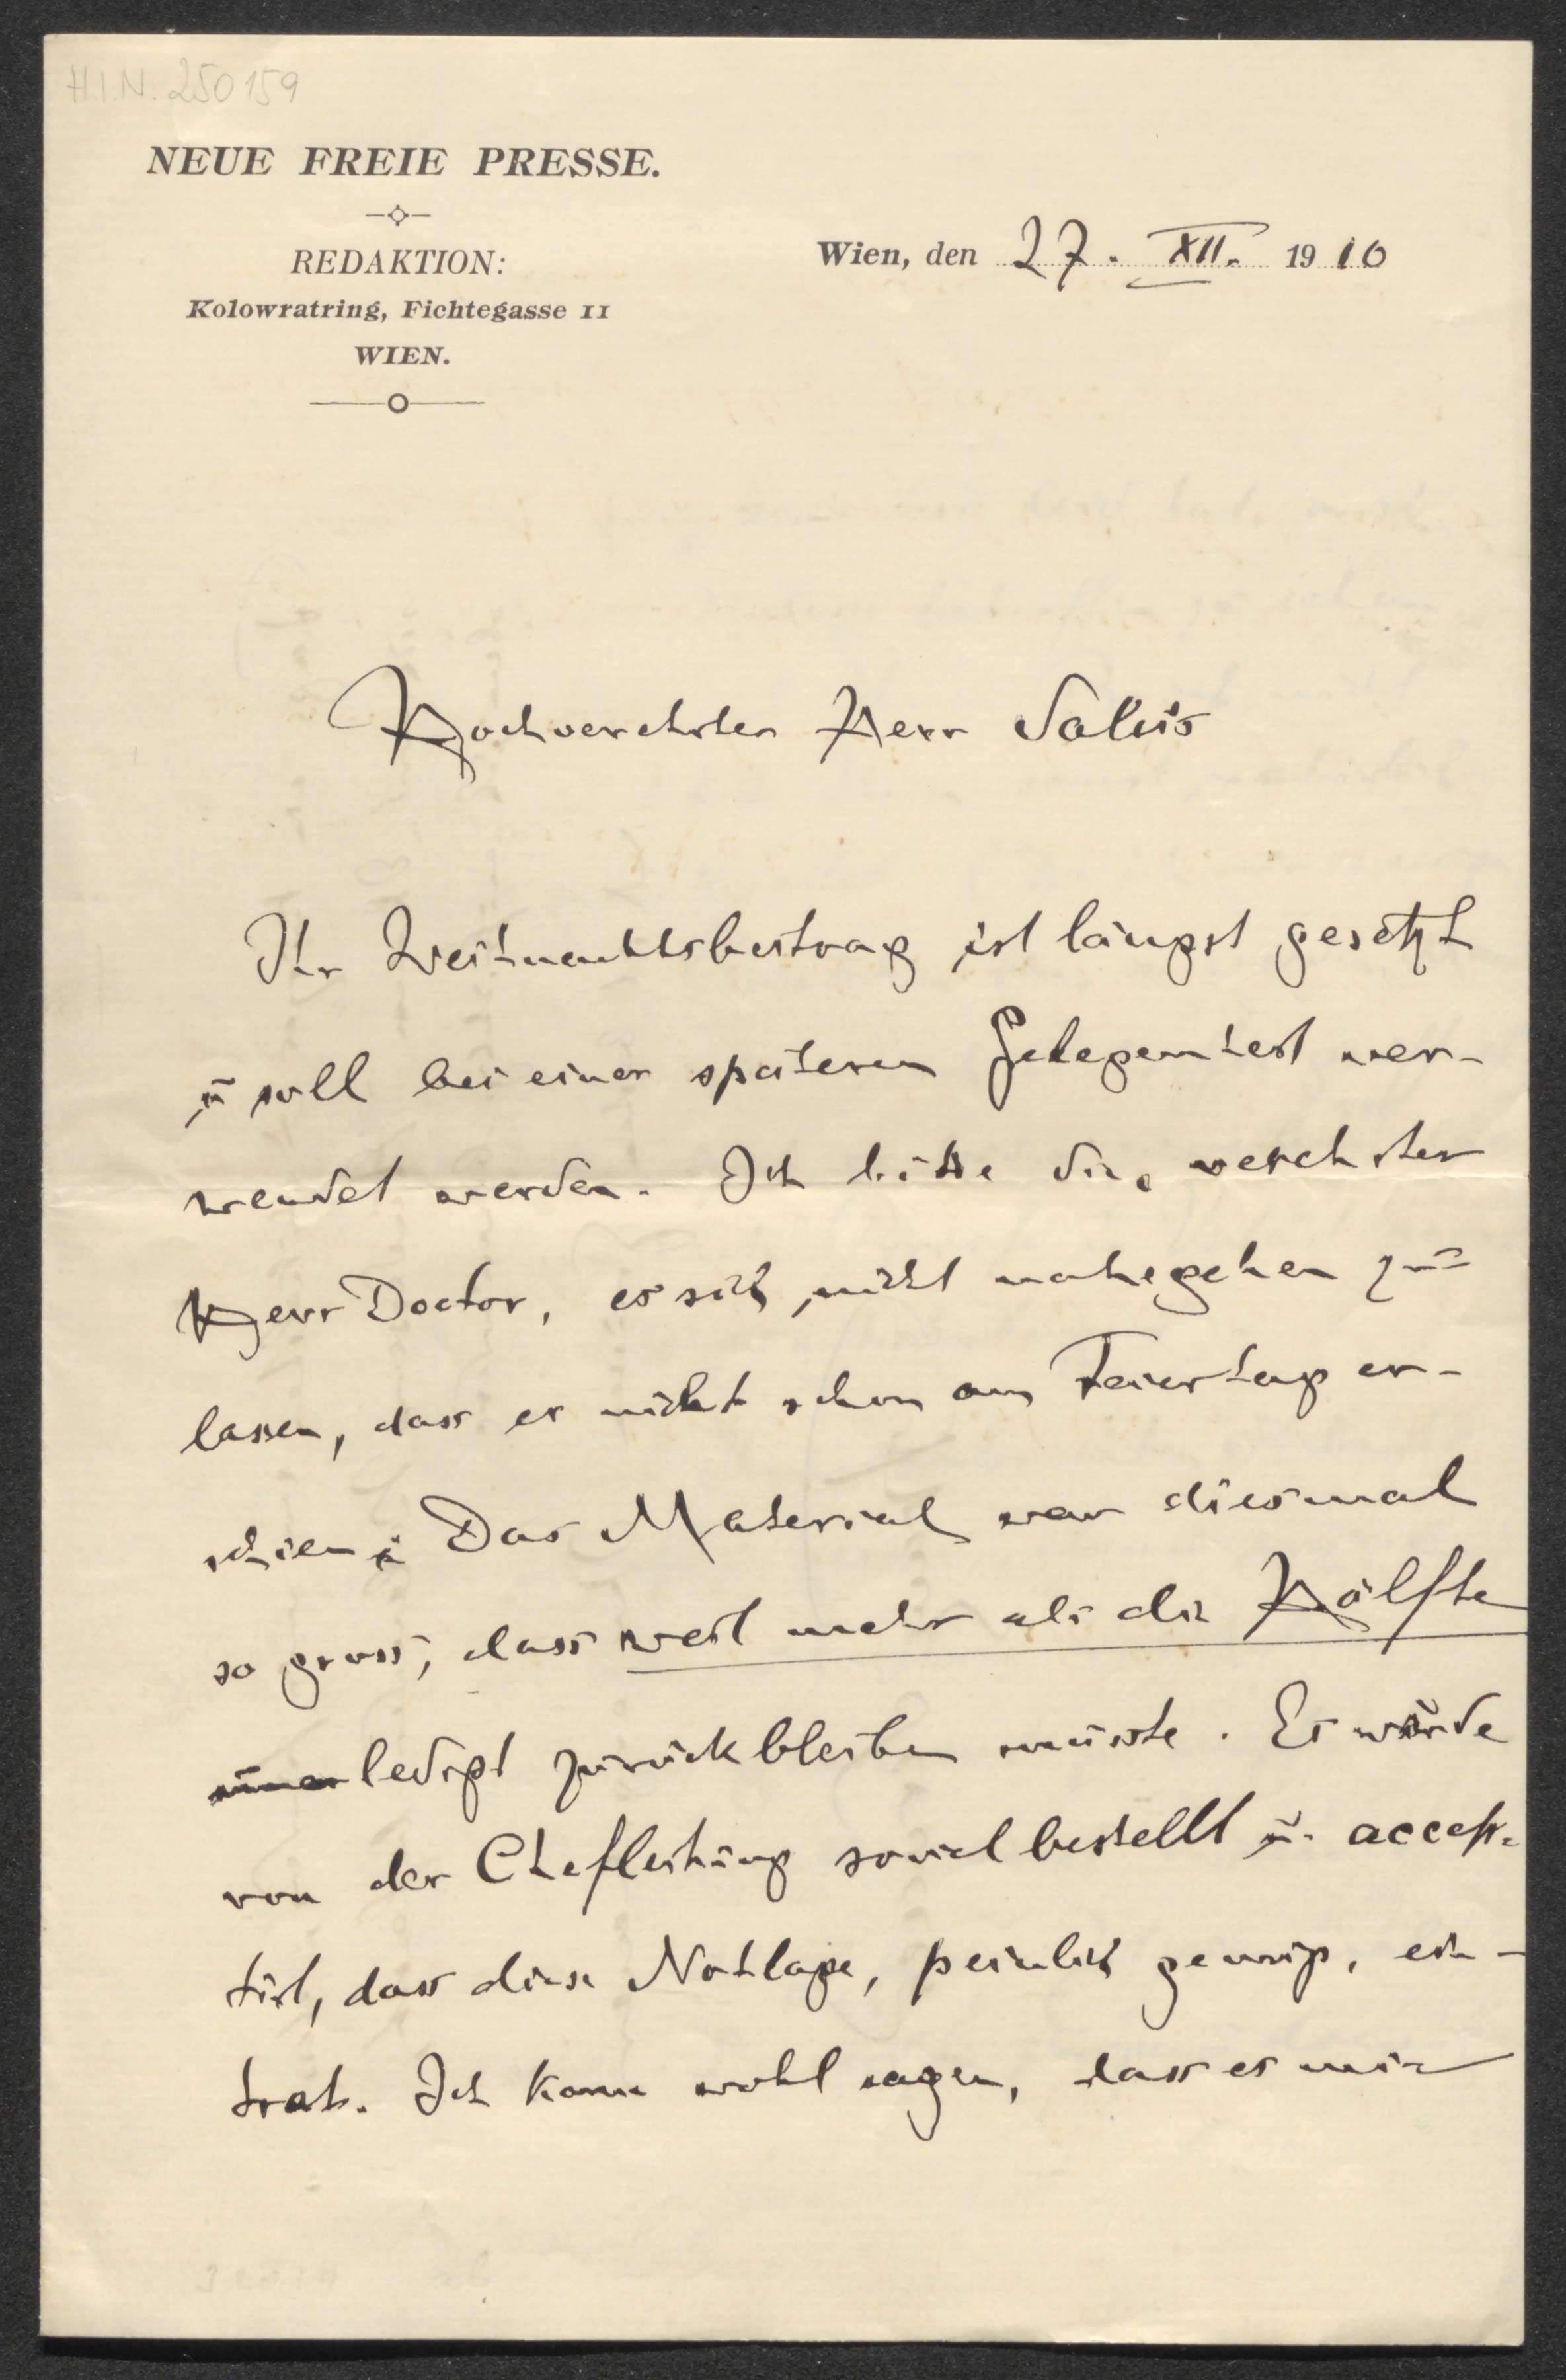 H.I.N. 250159
NEUE FREIE PRESSE.
REDAKTION:
Kolowratring, Fichtegasse 11
WIEN.
Wien, den 27. XII. 1910
Hochverehrter Herr Salus
Ihr Weihnachtsbeitrag ist längst gesetzt
u soll bei einer späteren Gelegenheit ver-
wendet werden. Ich bitte Sie, verehrter
Herr Doctor, es sich nicht nahegehen zu
lassen, dass er nicht schon am Feiertag er-
schien; Das Material war diesmal
so gross, dass weit mehr als die Hälfte
ledigt zurückbleiben musste. Es wurde
von der Chefleitung soviel bestellt u. accep-
tirt, dass diese Notlage, peinlich genug, ein-
trat. Ich kann wohl sagen, dass es mir